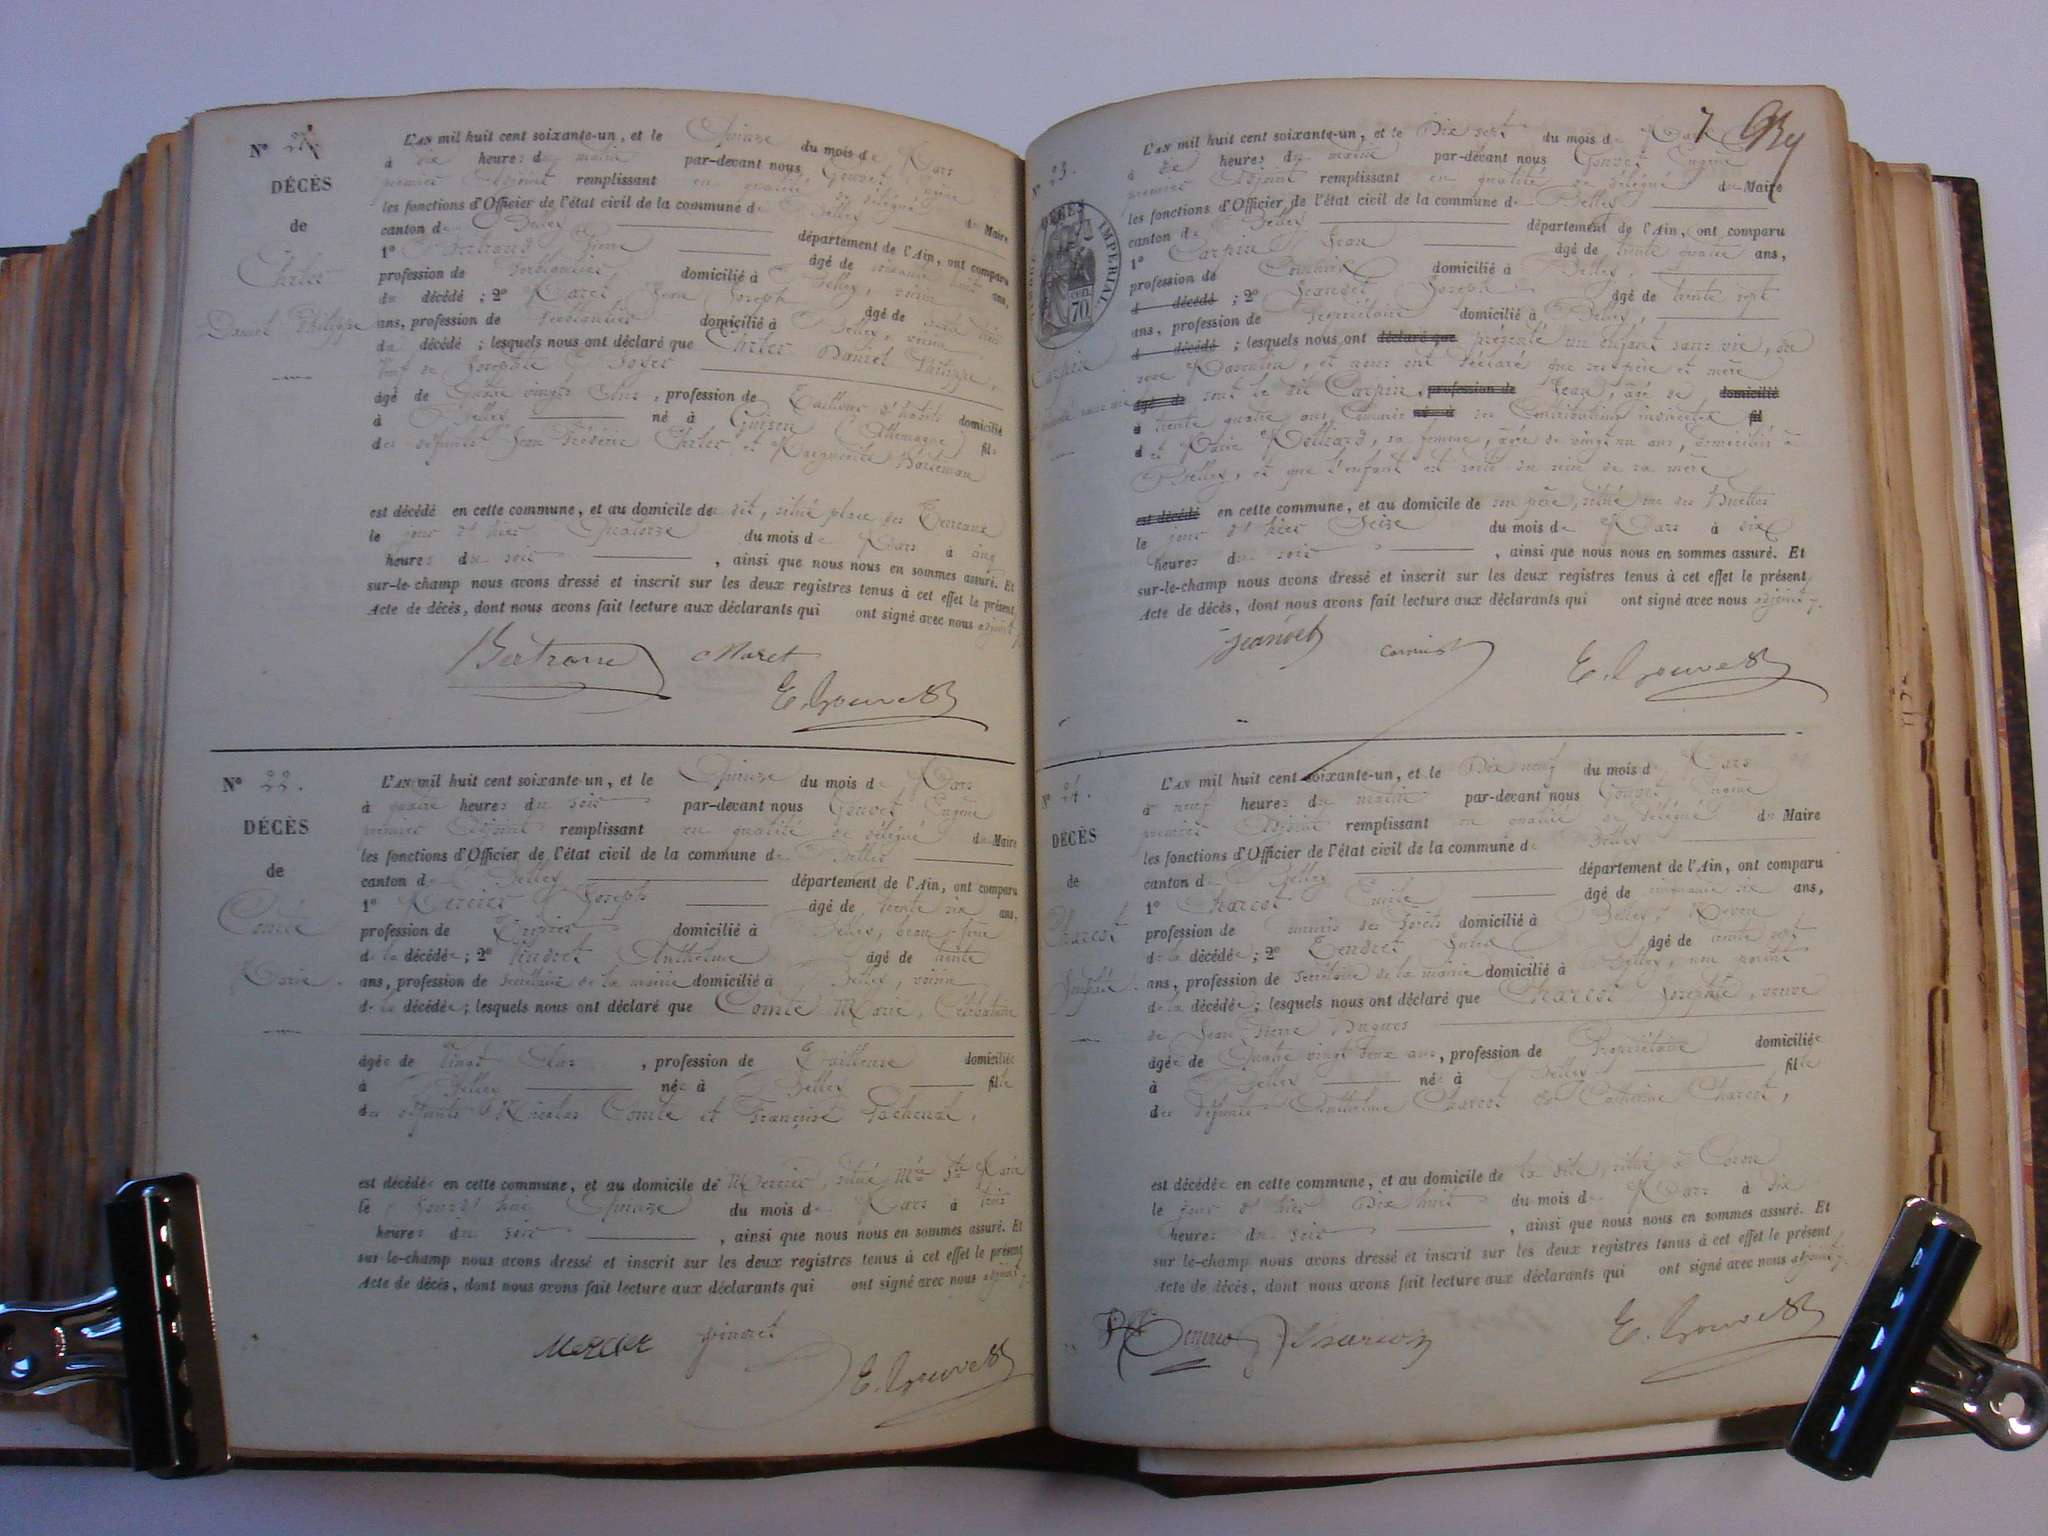 N° 21.
DÉCÈS
de
Ehrler
Daniel Philippe
L'AN mil huit cent soixante-un, et le Quinze du mois de Mars
à dix heures du matin par-devant nous Gouvet Eugène
premier Adjoint remplissant en qualité de délégué du Maire
les fonctions d'Officier de l'état civil de la commune de Belley
canton de Belley département de l'Ain, ont comparu
1° Bertrand Pierre âgé de soixante huit ans,
profession de ferblantier domicilié à Belley, voisin
du décédé ; 2° Maret Jean Joseph âgé de
ans, profession de ferblantier domicilié à Belley, voisin
du décédé ; lesquels nous ont déclaré que Ehrler Daniel Philippe,
veuf de Josephte
âgé de Quatre vingts ans, profession de Tailleur d'habits domicilié
à Belley né à (Allemagne) fils
des défunts Jean Frédéric Ehrler et Marguerite
est décédé en cette commune, et au domicile de dit, situé place des Terreaux
le jour d'hier Quatorze du mois de Mars à cinq
heures du soir , ainsi que nous nous en sommes assuré. Et
sur-le-champ nous avons dressé et inscrit sur les deux registres tenus à cet effet le présent
Acte de décès, dont nous avons fait lecture aux déclarants qui ont signé avec nous adjoint.
Bertrand Maret
E. Gouvet
N° 22.
DÉCÈS
de
Comte
Marie.
L'AN mil huit cent soixante-un, et le Quinze du mois de Mars
à quatre heures du soir par-devant nous Gouvet Eugène
premier Adjoint remplissant en qualité de délégué du Maire
les fonctions d'Officier de l'état civil de la commune de Belley
canton de Belley département de l'Ain, ont comparu
1° Mercier Joseph âgé de trente six ans,
profession de domicilié à Belley, beau-frère
de la décédée ; 2° Pindret Anthelme âgé de trente
ans, profession de Secrétaire de la mairie domicilié à Belley, voisin
de la décédée ; lesquels nous ont déclaré que Comte Marie, Célibataire
âgée de vingt ans , profession de Tailleuse domiciliée
à Belley née à Belley fille
des défunts Nicolas Comte et Françoise
est décédée en cette commune, et au domicile de Mercier, situé Ste Marie
le jourd'hui Quinze du mois de Mars à trois
heures du soir , ainsi que nous nous en sommes assuré. Et
sur-le-champ nous avons dressé et inscrit sur les deux registres tenus à cet effet le présent
Acte de décès, dont nous avons fait lecture aux déclarants qui ont signé avec nous adjoint.
Mercier Pindret
E. Gouvet
7
N° 23.
TIMBRE IMPERIAL
70
Carpin
L'AN mil huit cent soixante-un, et le Dix sept du mois de Mars
à dix heures du matin par-devant nous Gouvet Eugène
premier Adjoint remplissant en qualité de délégué du Maire
les fonctions d'Officier de l'état civil de la commune de Belley
canton de Belley département de l'Ain, ont comparu
1° Carpin Jean âgé de trente quatre ans,
profession de Commis domicilié à Belley,
d décédé ; 2° Jeandet Joseph âgé de trente sept
ans, profession de Propriétaire domicilié à Belley,
d décédé ; lesquels nous ont déclaré que présenté un enfant sans vie, du
sexe Masculin, et nous ont déclaré que ses père et mère
âgé de sont le dit Carpin, profession de Jean, âgé de domicilié
à trente quatre ans, Commis né à des Contributions indirectes fil
d et Marie Molliard, sa femme, âgée de vingt un ans, domiciliés à
Belley, et que l'enfant est sorti du sein de sa mère
est décédé en cette commune, et au domicile de son père, situé rue des
le jour d'hier Seize du mois de Mars à six
heures du soir , ainsi que nous nous en sommes assuré. Et
sur-le-champ nous avons dressé et inscrit sur les deux registres tenus à cet effet le présent
Acte de décès, dont nous avons fait lecture aux déclarants qui ont signé avec nous adjoint.
Jeandet
E. Gouvet
N° 24.
DÉCÈS
de
Charcot
Josephte.
L'AN mil huit cent soixante-un, et le Dix neuf du mois de Mars
à neuf heures du matin par-devant nous Gouvet Eugène
premier Adjoint remplissant en qualité de délégué du Maire
les fonctions d'Officier de l'état civil de la commune de Belley
canton de Belley département de l'Ain, ont comparu
1° Charcot Emile âgé de cinquante six ans,
profession de commis des forêts domicilié à Belley, Neveu
de la décédée ; 2° Tendret Jules âgé de trente sept
ans, profession de Secrétaire de la mairie domicilié à Belley, non parent
de la décédée ; lesquels nous ont déclaré que Charcot Josephte, veuve
de Jean Pierre Hugues
âgée de Quatre vingt deux ans, profession de Propriétaire domiciliée
à Belley née à Belley fille
des défunts Anthelme Charcot et Catherine Charcot,
est décédée en cette commune, et au domicile de la dite, situé à
le jour d'hier Dix huit du mois de Mars à dix
heures du soir , ainsi que nous nous en sommes assuré. Et
sur-le-champ nous avons dressé et inscrit sur les deux registres tenus à cet effet le présent
Acte de décès, dont nous avons fait lecture aux déclarants qui ont signé avec nous adjoint.
E. Gouvet